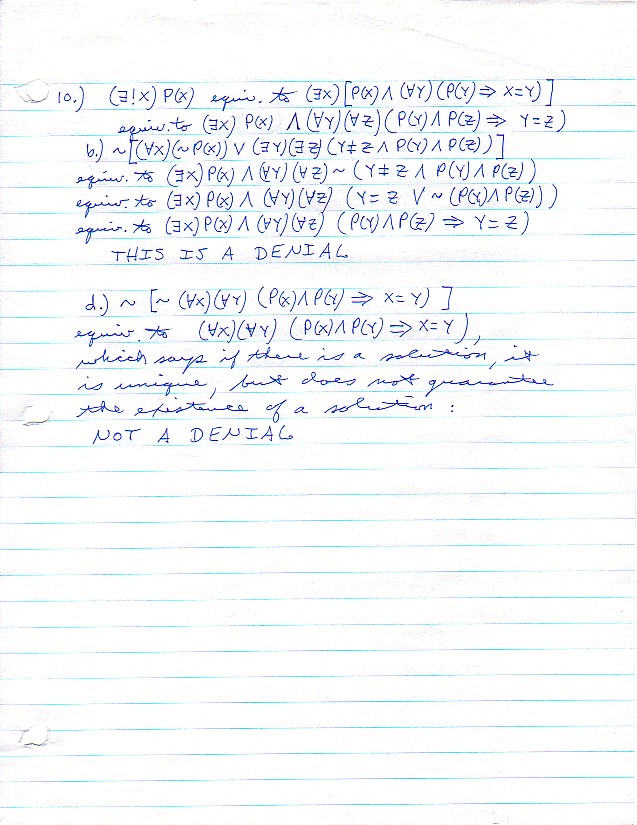 10.) (∃!X) P(X) equiv. to (∃X) [P(X) ∧ (∀Y) (P(Y) ⇒ X=Y)]
equiv. to (∃X) P(X) ∧ (∀Y)(∀Z) (P(Y) ∧ P(Z) ⇒ Y=Z)
b.) ~[(∀X)(~P(X)) ∨ (∃Y)(∃Z) (Y≠Z ∧ P(Y) ∧ P(Z))]
equiv. to (∃X) P(X) ∧ (∀Y)(∀Z) ~ (Y≠Z ∧ P(Y) ∧ P(Z))
equiv. to (∃X) P(X) ∧ (∀Y)(∀Z) (Y=Z ∨ ~(P(Y) ∧ P(Z)))
equiv. to (∃X) P(X) ∧ (∀Y)(∀Z) (P(Y) ∧ P(Z) ⇒ Y=Z)
THIS IS A DENIAL
d.) ~ [~ (∀X)(∀Y) (P(X) ∧ P(Y) ⇒ X=Y)]
equiv. to (∀X)(∀Y) (P(X) ∧ P(Y) ⇒ X=Y),
which says if there is a solution, it
is unique, but does not guarantee
the existence of a solution:
NOT A DENIAL